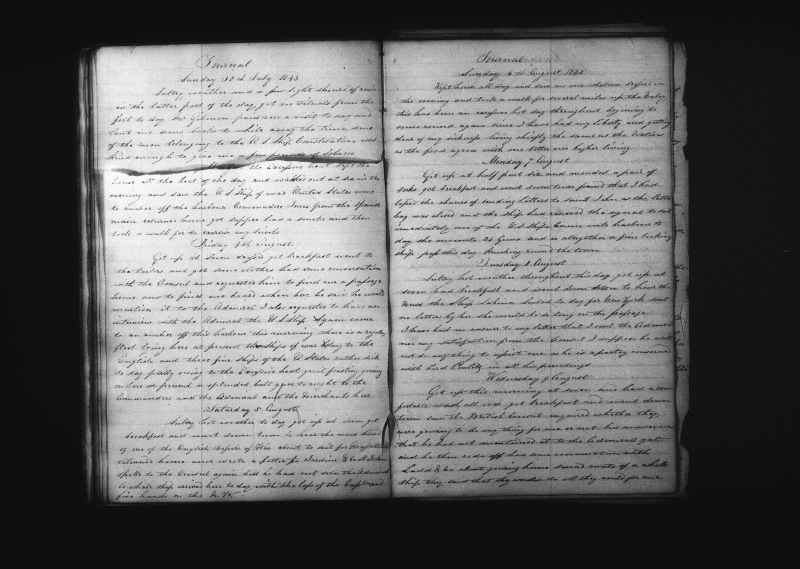 Journal
Sunday 30th July 1843
Sultry weather and a few light showers of rain
in the latter part of the day, got no reliefs from the
fort to day Mr Gilman paid me a visit to day and
lent me some books to while away the time, some
of the men belonging to the U S Ship Constellation was
kind enough to give me a few pounds of tobacco
the excessive heat kept the
house till the end of the day and walked out at six in the
evening and saw the U S Ship of war United States come
to anchor off the harbour Commodore Jones from the Spanish
main returned home got supper had a smoke and then
took a walk for to exercise my limbs
Friday 4th August
Got up at seven dressed got breakfast went to
the tailors and got some clothes had some conversation
with the Consul and requested him to find me a passage
home and to find me board when he said he would
mention it to the Admiral I also requested to have an
interview with the Admiral the U S Ship Cyane came
to an anchor off this harbour this morning there is a royal
fleet lying here at present the ships of war belong to the
English and three fine ships of the U States rather sick
to day partly owing to the excessive heat great feasting going
on here at present a splendid ball given to night to the
Commanders and the Admiral and the Merchants here
Saturday 5 August
Sultry hot weather to day got up at seven got
breakfast and went down town to hear the news heard
of one of the English Ships of War about to sail for
returned home and wrote a letter to Jardine & Co St John
spoke to the Consul again but he had not seen the Admiral
a whale ship arrived here to day with the loss of the Capt and
five hands on the N. W.
Journal
Sunday 6th August 1843
Kept house all day and saw no one
the evening and took a walk for several miles up the Valley
this has been an hot day throughout beginning to
come round again since I have had my liberty and getting
clear of my sickness living chiefly the same as the natives
as the food agrees with me better nor higher living
Monday 7 August
Got up at half past six and mended a pair of
shoes got breakfast and went down town found that I had
lost the chance of sending letters to Saint John as the letter
bag was closed and the ship had received the signal to sail
immediately one of the U S Ships came into harbour to
day she mounts 24 Guns and is altogether a fine looking
ship pass this day thinking round the town
Tuesday 8 August
Sultry hot weather throughout this day, got up at
seven had breakfast and went down town to hear the
news the Ship Sabina sailed to day for New York sent
no letter by her she would be so long on the passage
I have had no answer to my letter that I sent the Admiral
nor any satisfaction from the Consul I suppose he will
not do anything to assist me as he is a party concerned
with Lord Paulet in all his proceedings
Wednesday 9 August
Got up this morning at seven and had a com
fortable wash all over got breakfast and went down
town saw the British Consul inquired whether they
were going to do any thing for me or not his answer was
that he had not mentioned it to the Admiral yet
and he then rode off had some conversation with
Ladd & Co about going home second mate of a whale
ship they said that they would do all they could for me